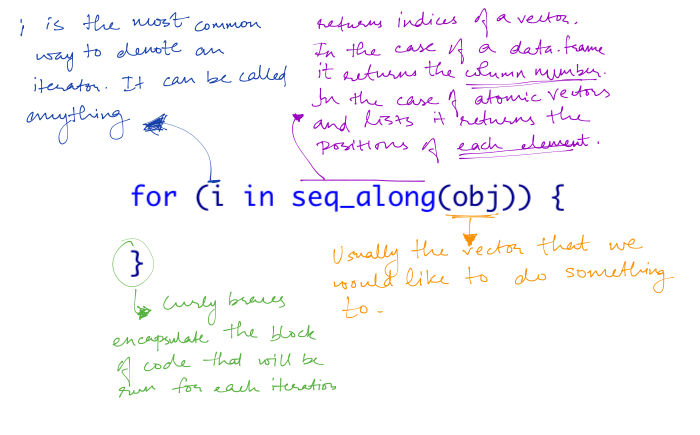 i is the most common
way to denote an
iterator. It can be called
anything
returns indices of a vector.
In the case of a data.frame
it returns the column number.
In the case of atomic vectors
and lists it returns the
positions of each element.
for (i in seq_along(obj)) {
}
Usually the vector that we
would like to do something
to.
Curly braces
encapsulate the block
of code that will be
run for each iteration